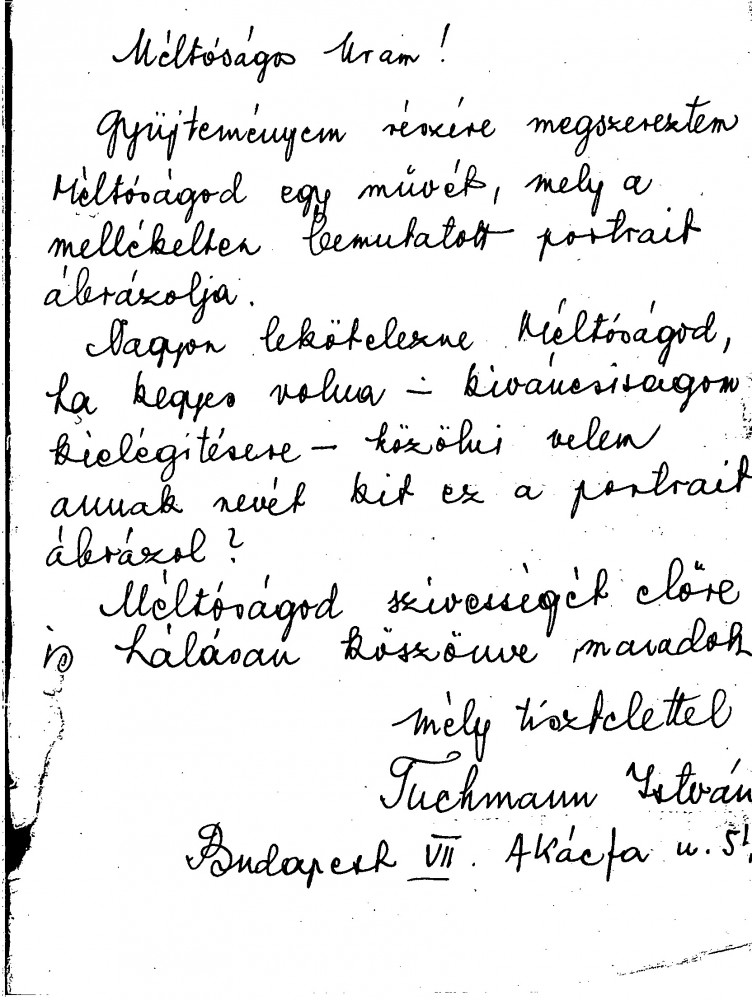 Méltóságos Uram!
Gyüjteményem részére megszereztem
Méltóságod egy művét, mely a
mellékelten bemutatott portrait
ábrázolja.
Nagyon lekötelezne Méltóságod,
ha kegyes volna – kiváncsiságom
kielégítésere – közölni velem
annak nevét kit ez a portrait
ábrázol?
Méltóságod szivességét előre
is hálásan köszönve maradok
mély tisztelettel
Tuchmann István
Budapest VII. Akácfa u. 51.